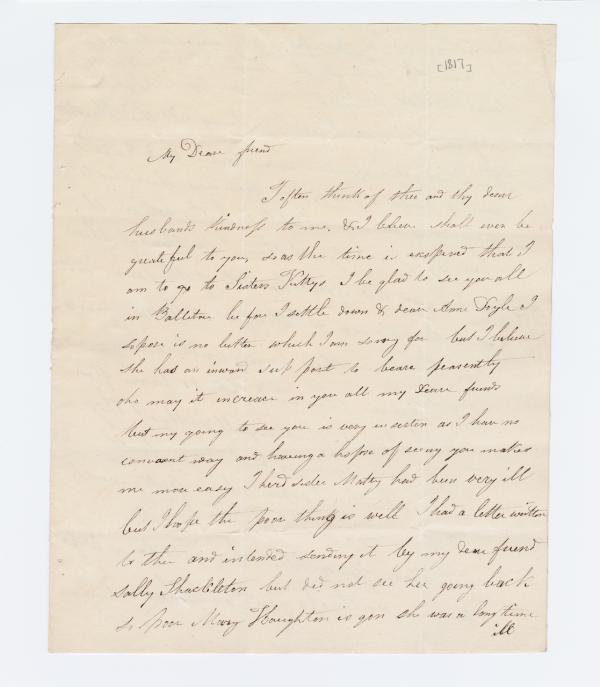 [1817]
My Deare friend
I often think of thee and thy deare
husbands kindness to me, & I beleve shall ever be
grateful to you, so as the time is exspired that I
am to go to Sisters Kittys I be glad to see you all
in Balletore before I settle down & deare Anne Doyle I
sopose is no better which I am sorry for but I beleive
she has an inward sup port to beare pasently
oho may it increase in you all my Deare friends
but my going to see you is very unserten as I have no
convaent way and having a hopse of seeing you makes
me more easy I herd sister Matty had been very ill
but I hope the poor thing is well I had a letter written
to thee and intended sending it by my deare friend
Sally Shackleton but did not see her going back
so poor Mary Haughton is gon she was a long time
ill